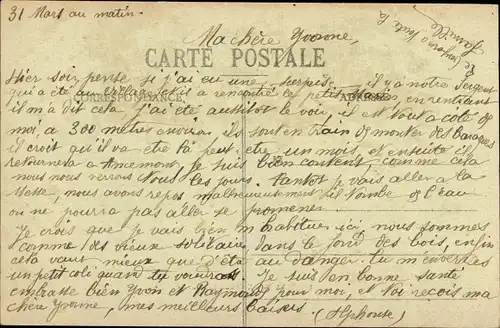 31 Mars au matin.
Ma chère Yvonne,
toute la
famille
CARTE POSTALE
Hier soir pense si j'ai eu une surprise il y a notre sergent
CORRESPONDANCE ADRESSE
qui a été au village et il a rencontré le petit en rentrant
il m'a dit cela j'ai été aussitôt le voir, il est tous a coté de
moi, a 300 metres environ. ils sont en train de monter des baraques
il croit qu'il va etre là peut etre un mois, et ensuite il
retournera a je suis bien content comme cela
nous nous verrons tous les jours. tantot je vais aller a la
Messe, nous avons repos malheureusement il tombe de l'eau
on ne pourra pas aller se promener
Je crois que je vais bien m'habituer ici, nous sommes
comme des vieux solitaires dans le fond des bois, enfin
cela vaut mieux que d'etre au danger. tu m'enverras
un petit colis quand tu voudras. Je suis en bonne santé
embrasse bien Yvon et Raymond pour moi, et toi reçois ma
chère Yvonne, mes meilleurs baisers (Alphonse)